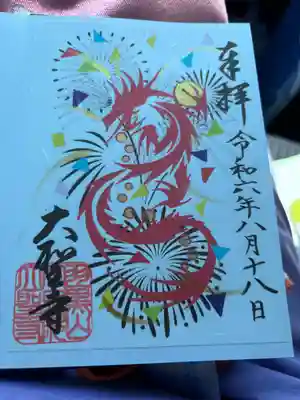 奉拝
令和六年八月十八日
大聖寺